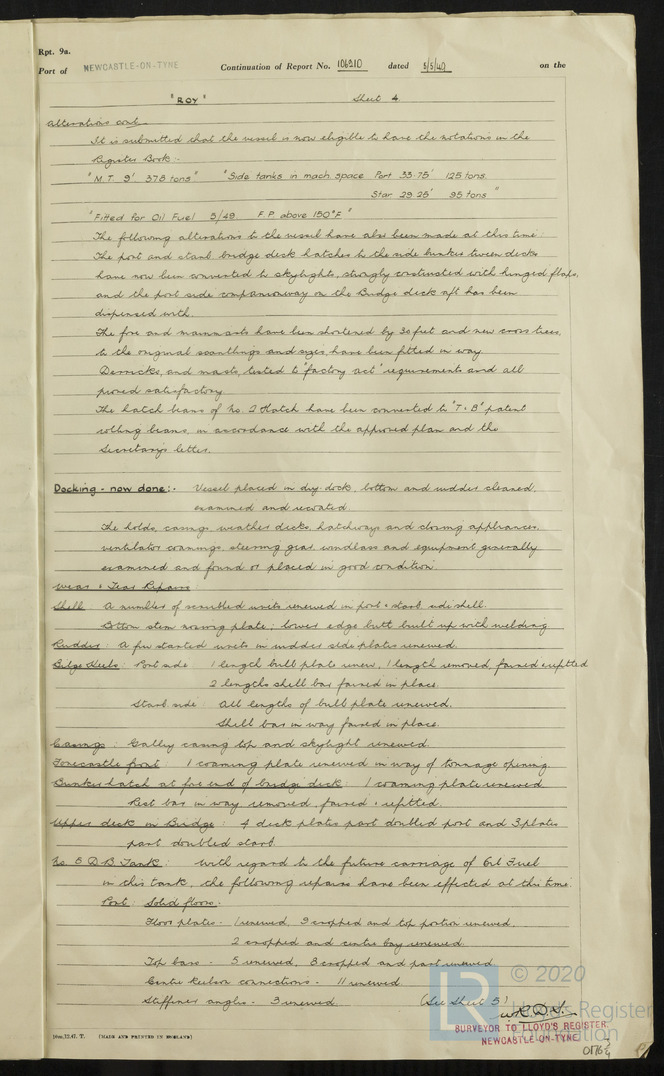 Rpt. 9a.
Port of NEWCASTLE-ON-TYNE Continuation of Report No. 106210 dated 5/5/49 on the
"ROY" Sheet 4.
Alterations cont.
It is submitted that the vessel is now eligible to have the notations in the
Register Book :-
"M.T. 9' 378 tons" "Side tanks in mach. space Port 33.75' 125 tons.
Star 29.25' 95 tons"
"Fitted for Oil Fuel 5/49 F.P. above 150°F"
The following alterations to the vessel have also been made at this time:
The port and starb bridge deck hatches to the side bunker tween decks
have now been converted to skylights, strongly constructed with hinged flaps,
and the port side companionway on the Bridge deck aft has been
dispensed with.
The fore and mainmasts have been shortened by 30 feet and new cross trees,
to the original scantlings and sizes, have been fitted in way.
Derricks, and masts, tested to "factory act" requirements and all
proved satisfactory.
The hatch beams of No. 2 Hatch have been converted to "T.B" patent
rolling beams, in accordance with the approved plan and the
Secretary's letter.
Docking - now done :- Vessel placed in dry dock, bottom and rudder cleaned,
examined and recoated.
The holds, casings, weather decks, hatchways and closing appliances,
ventilator coamings, steering gear, windlass and equipment generally
examined and found or placed in good condition.
Wear & Tear Repairs
Shell : A number of scrubbed rivets renewed in port & starb. side shell.
Bottom stem nosing plate; lower edge butt built up with welding
Rudder : A few started rivets in rudder side plates renewed.
Bilge Keels : Port side 1 length bulb plate renew, 1 length removed faired & refitted
2 lengths shell bar faired in place.
Starb side : All lengths of bulb plate renewed.
Shell bar in way faired in place.
Casings : Galley casing top and skylight renewed.
Forecastle front 1 coaming plate renewed in way of tonnage opening.
Bunker hatch at fore end of bridge deck : 1 coaming plate renewed
Rest bar in way removed, faired & refitted.
Upper deck in Bridge : 4 deck plates part doubled port and 3 plates
part doubled starb.
No 5 D.B. Tank : With regard to the future carriage of Oil Fuel
in this tank, the following repairs have been effected at this time:
Port : Solid floors.
Floor plates - 1 renewed, 9 cropped and top portion renewed,
2 cropped and centre bay renewed.
Top bars - 5 renewed, 8 cropped and part renewed.
Centre keelson connections - 11 renewed.
Stiffener angles - 3 renewed. (See Sheet 5)
SURVEYOR TO LLOYD'S REGISTER.
NEWCASTLE-ON-TYNE
10m,12.47. T. (MADE AND PRINTED IN ENGLAND)
LR © 2020
Lloyd's Register
Foundation